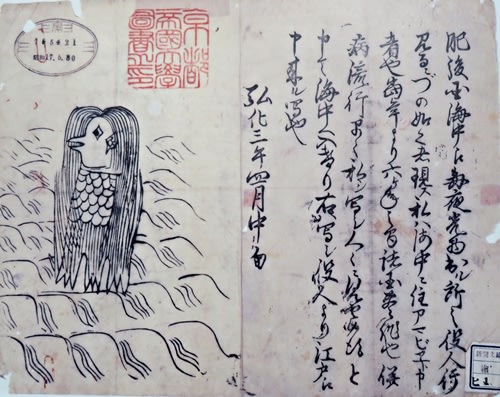 肥後国海中え毎夜光物出ル所之役人行
見るニづの如く者現ス私ハ海中ニ住アマビヱト申
者也当年より六ヶ年之間諸国豊作也併
病流行早々私ヲ写シ人々ニ見せ候得と
申て海中へ入けり右写シ役人より江戸え
申来ル写也
弘化三年四月中旬
京都
帝國大學
圖書之印
昭和17.6.30